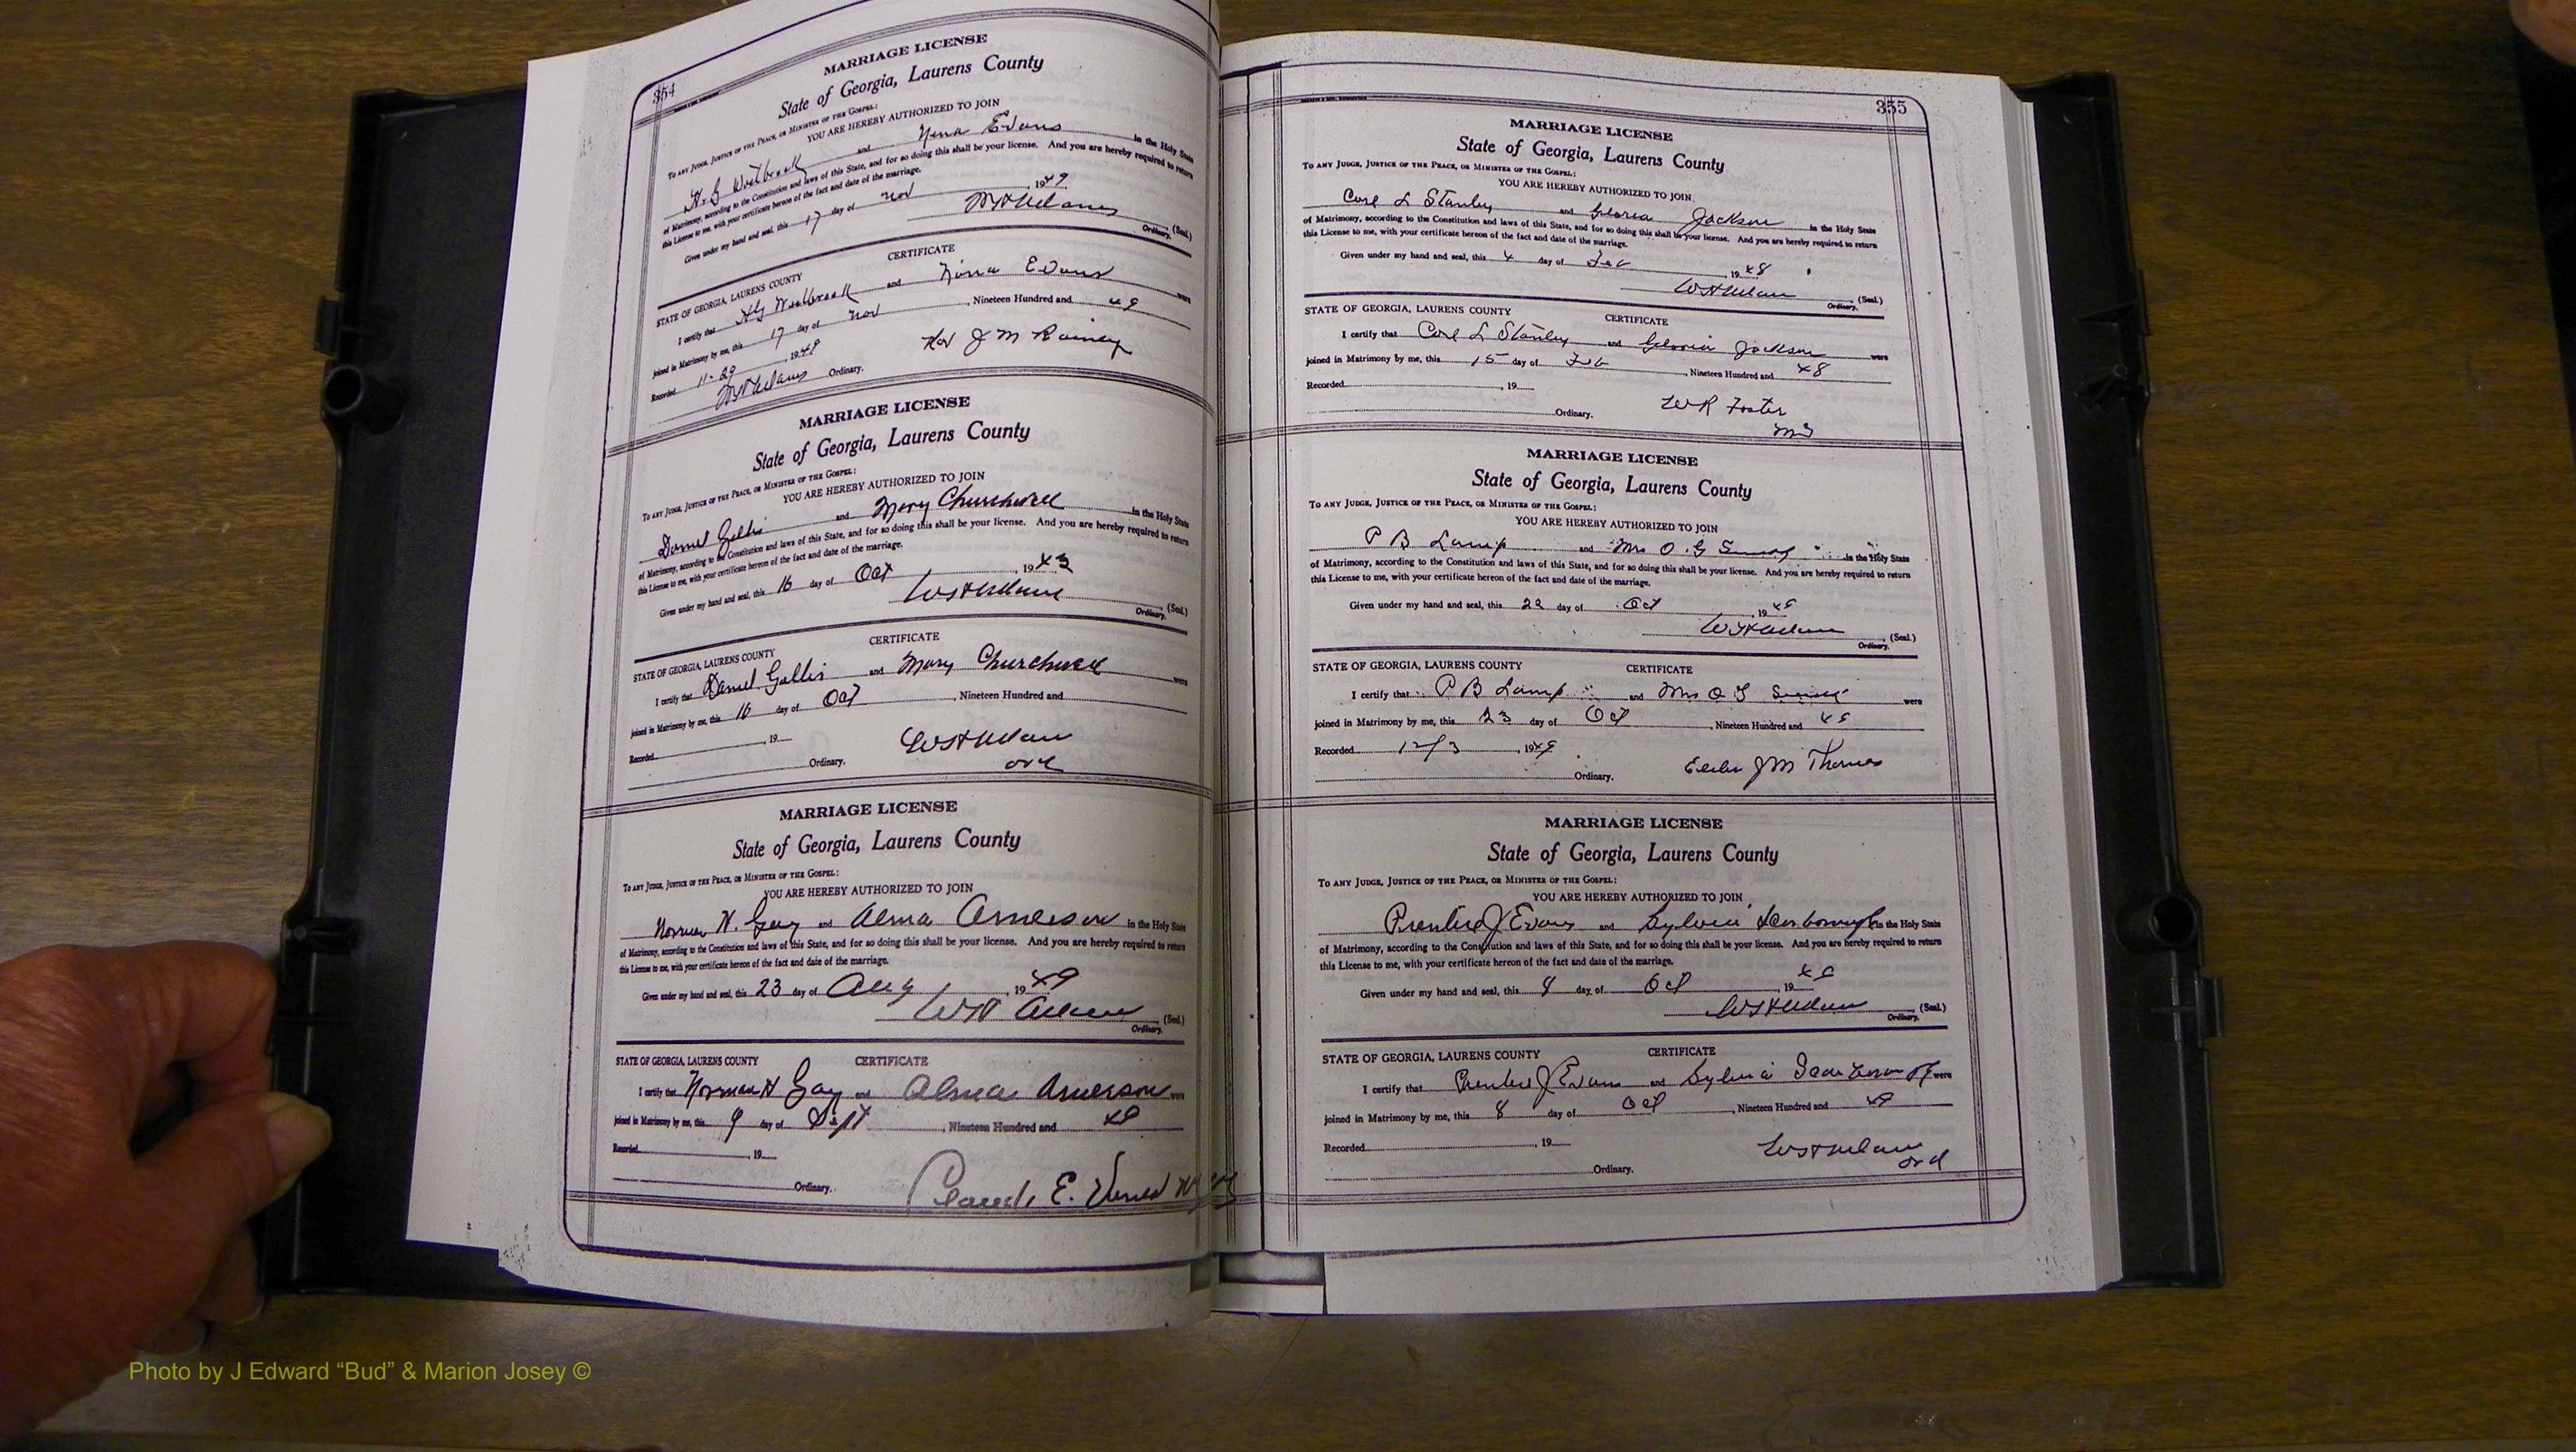 354
MARRIAGE LICENSE
State of Georgia, Laurens County
TO ANY JUDGE, JUSTICE OF THE PEACE, OR MINISTER OF THE GOSPEL:
YOU ARE HEREBY AUTHORIZED TO JOIN
and Nina Evans in the Holy State
of Matrimony, according to the Constitution and laws of this State, and for so doing this shall be your license. And you are hereby required to return
this License to me, with your certificate hereon of the fact and date of the marriage.
Given under my hand and seal, this 17 day of Nov, 1949
(Seal.)
Ordinary.
CERTIFICATE
STATE OF GEORGIA, LAURENS COUNTY
I certify that and Nina Evans were
joined in Matrimony by me, this 17 day of Nov, Nineteen Hundred and 49
Recorded 11-29, 1949
Rev J M Rainey
Ordinary.
MARRIAGE LICENSE
State of Georgia, Laurens County
TO ANY JUDGE, JUSTICE OF THE PEACE, OR MINISTER OF THE GOSPEL:
YOU ARE HEREBY AUTHORIZED TO JOIN
Daniel and Mary Churchwell in the Holy State
of Matrimony, according to the Constitution and laws of this State, and for so doing this shall be your license. And you are hereby required to return
this License to me, with your certificate hereon of the fact and date of the marriage.
Given under my hand and seal, this 16 day of Oct, 1943
(Seal.)
Ordinary.
CERTIFICATE
STATE OF GEORGIA, LAURENS COUNTY
I certify that Daniel and Mary Churchwell were
joined in Matrimony by me, this 16 day of Oct, Nineteen Hundred and
Recorded, 19
Ordinary.
ord
MARRIAGE LICENSE
State of Georgia, Laurens County
TO ANY JUDGE, JUSTICE OF THE PEACE, OR MINISTER OF THE GOSPEL:
YOU ARE HEREBY AUTHORIZED TO JOIN
Norman H. Gay and Alma Amerson in the Holy State
of Matrimony, according to the Constitution and laws of this State, and for so doing this shall be your license. And you are hereby required to return
this License to me, with your certificate hereon of the fact and date of the marriage.
Given under my hand and seal, this 23 day of Aug, 1949
(Seal.)
Ordinary.
STATE OF GEORGIA, LAURENS COUNTY CERTIFICATE
I certify that Norman H Gay and Alma Amerson were
joined in Matrimony by me, this 9 day of Sept, Nineteen Hundred and 49
Recorded, 19
Ordinary.
Claude E.
355
MARRIAGE LICENSE
State of Georgia, Laurens County
TO ANY JUDGE, JUSTICE OF THE PEACE, OR MINISTER OF THE GOSPEL:
YOU ARE HEREBY AUTHORIZED TO JOIN
Carl L Stanley and Gloria Jackson in the Holy State
of Matrimony, according to the Constitution and laws of this State, and for so doing this shall be your license. And you are hereby required to return
this License to me, with your certificate hereon of the fact and date of the marriage.
Given under my hand and seal, this 4 day of Feb, 1948
(Seal.)
Ordinary.
STATE OF GEORGIA, LAURENS COUNTY CERTIFICATE
I certify that Carl L Stanley and Gloria Jackson were
joined in Matrimony by me, this 15 day of Feb, Nineteen Hundred and 48
Recorded, 19
Ordinary. W R Foster
MG
MARRIAGE LICENSE
State of Georgia, Laurens County
TO ANY JUDGE, JUSTICE OF THE PEACE, OR MINISTER OF THE GOSPEL:
YOU ARE HEREBY AUTHORIZED TO JOIN
P B Lamp and Mrs O G in the Holy State
of Matrimony, according to the Constitution and laws of this State, and for so doing this shall be your license. And you are hereby required to return
this License to me, with your certificate hereon of the fact and date of the marriage.
Given under my hand and seal, this 22 day of Oct, 19
(Seal.)
Ordinary.
STATE OF GEORGIA, LAURENS COUNTY CERTIFICATE
I certify that P B Lamp and Mrs O G were
joined in Matrimony by me, this 23 day of Oct, Nineteen Hundred and
Recorded 12/3, 1949
Ordinary. Elder J M Thomas
MARRIAGE LICENSE
State of Georgia, Laurens County
TO ANY JUDGE, JUSTICE OF THE PEACE, OR MINISTER OF THE GOSPEL:
YOU ARE HEREBY AUTHORIZED TO JOIN
J Evans and Sylvia Scarborough in the Holy State
of Matrimony, according to the Constitution and laws of this State, and for so doing this shall be your license. And you are hereby required to return
this License to me, with your certificate hereon of the fact and date of the marriage.
Given under my hand and seal, this 8 day of Oct, 19
(Seal.)
Ordinary.
STATE OF GEORGIA, LAURENS COUNTY CERTIFICATE
I certify that J Evans and Sylvia Scarborough were
joined in Matrimony by me, this 8 day of Oct, Nineteen Hundred and 49
Recorded, 19
ord
Ordinary.
Photo by J Edward “Bud” & Marion Josey ©